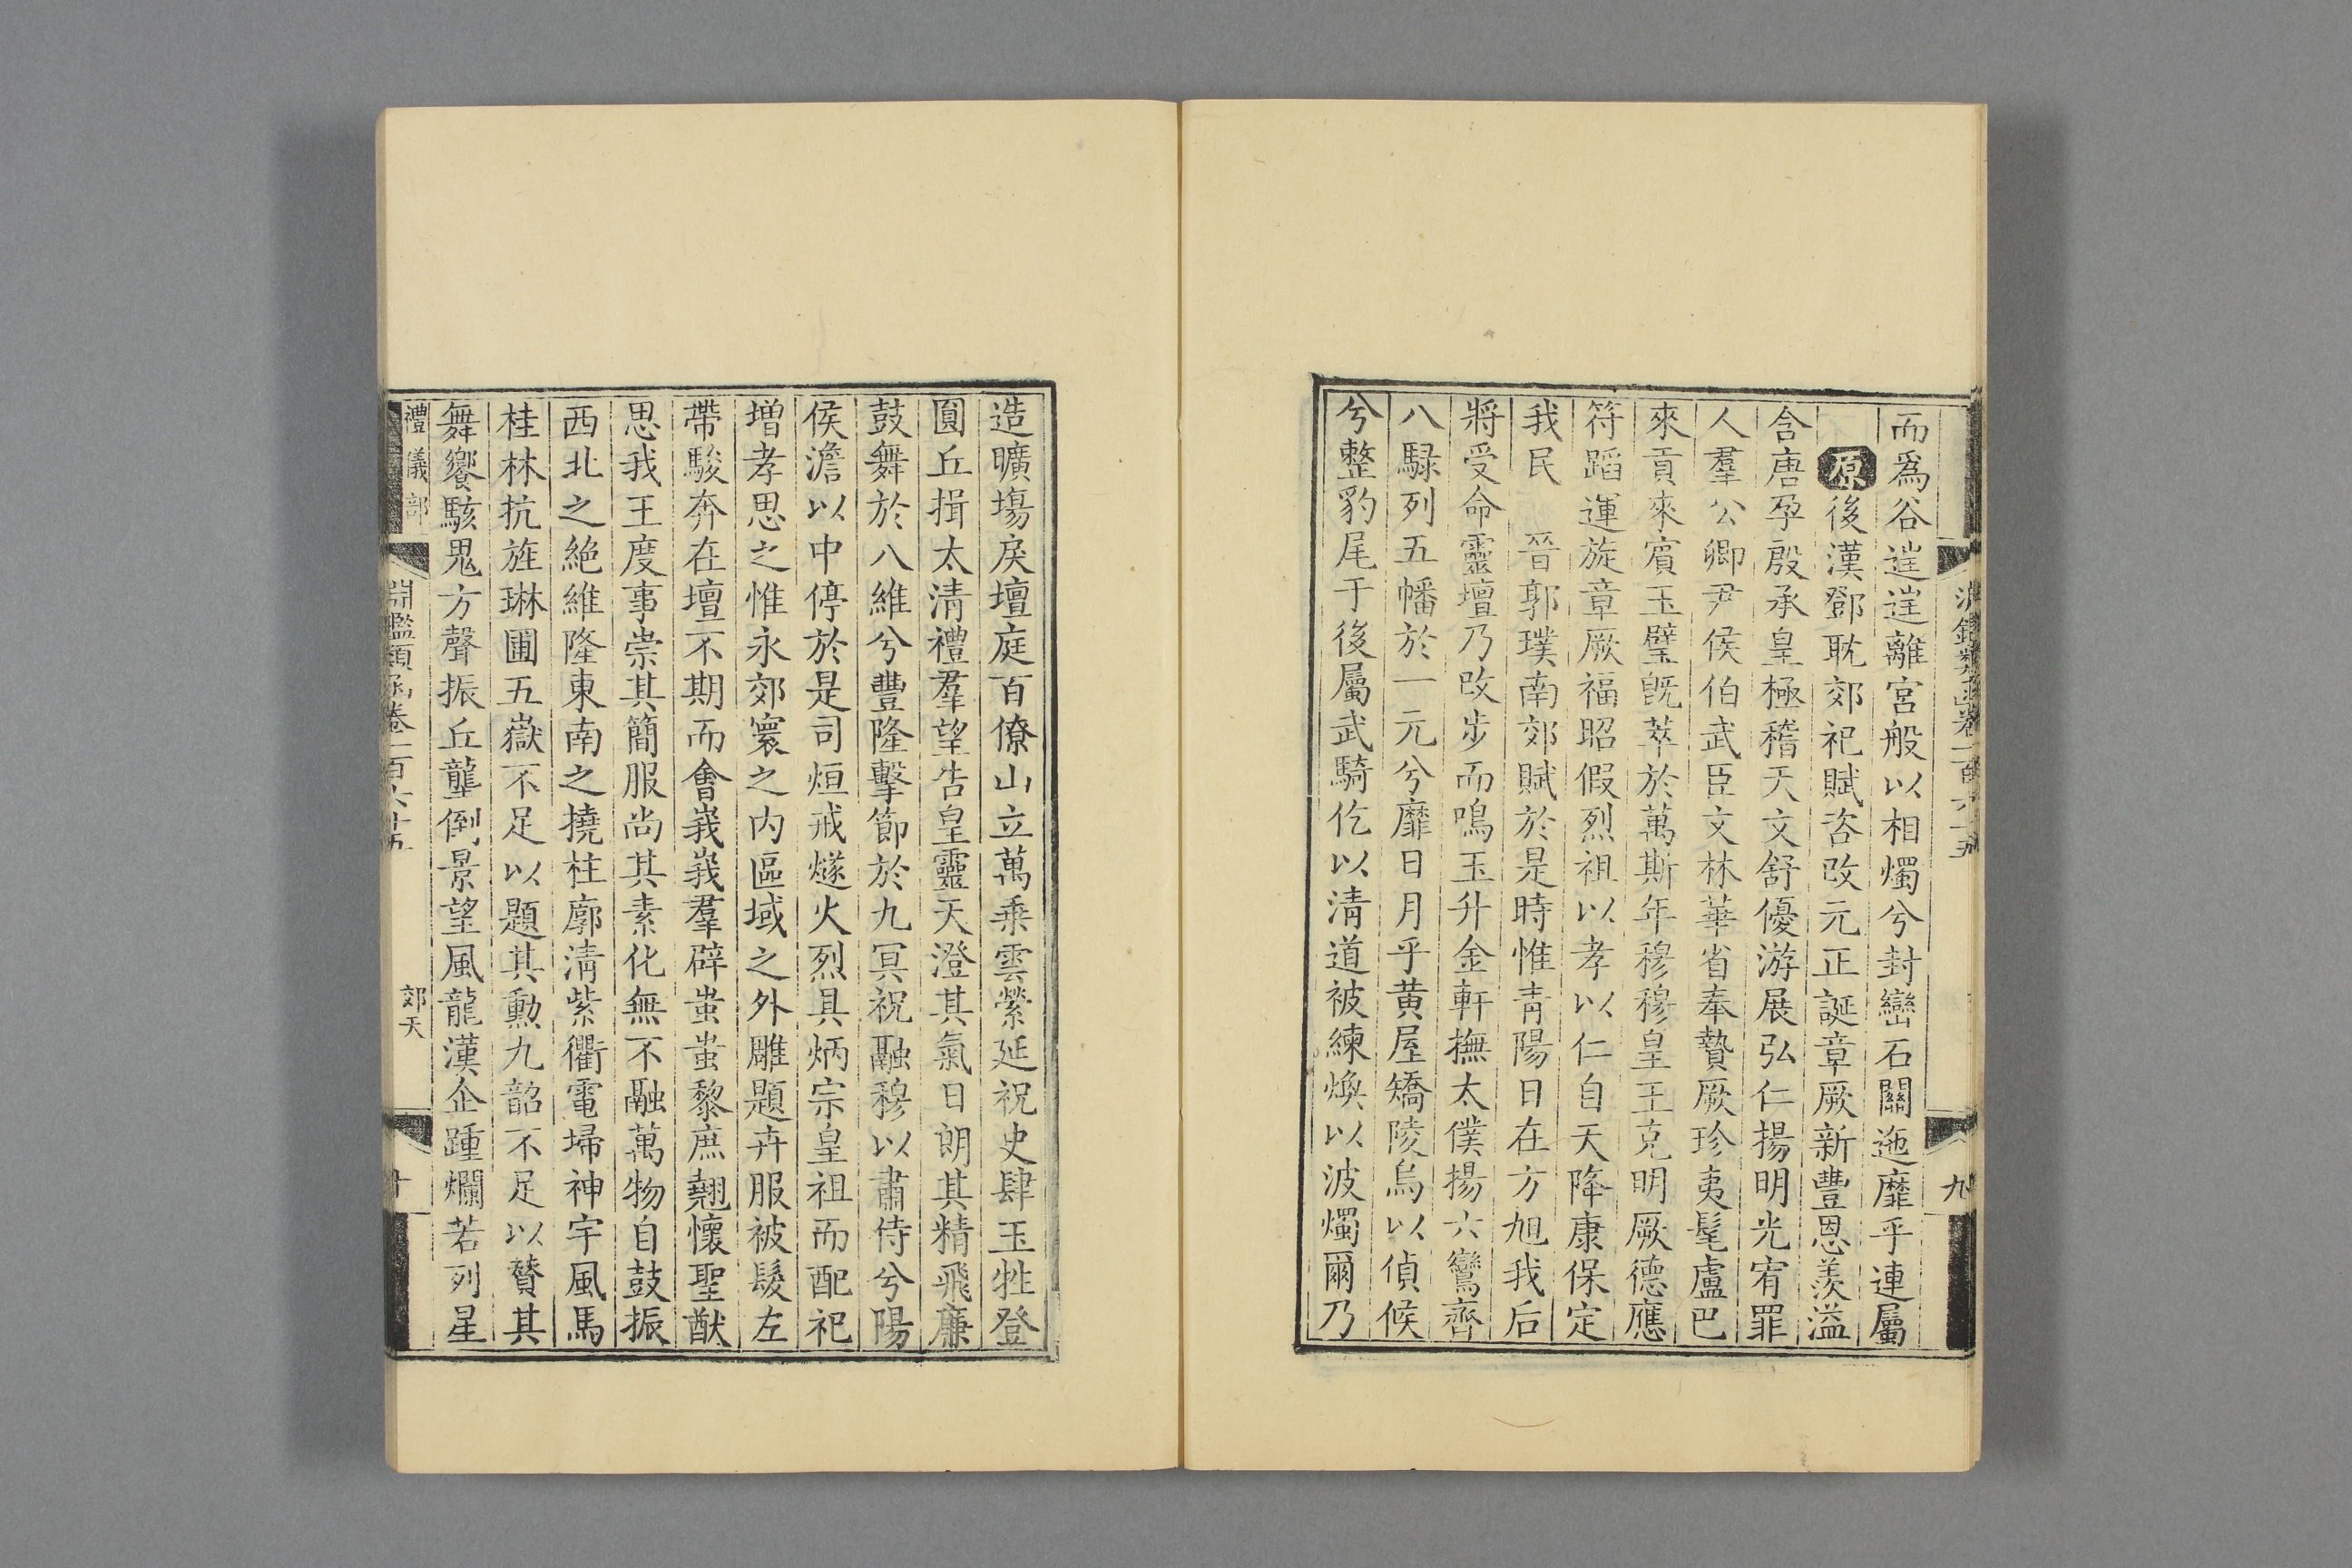 而爲谷迋迋離宮般以相燭兮封巒石關迤靡乎連屬
原後漢鄧耽郊祀賦咨改元正誕章厥新豐恩羨溢
含唐孕殷承皇極稽天文舒優游展弘仁揚明光宥罪
人羣公卿尹侯伯武臣文林華省奉贄厥珍夷髦盧巴
來貢來賓玉璧既萃於萬斯年穆穆皇王克明厥德應
符蹈運旋章厥福昭假烈祖以孝以仁自天降康保定
我民 晉郭璞南郊賦於是時惟青陽日在方旭我后
將受命靈壇乃改步而鳴玉升金軒撫太僕揚六鸞齊
八騄列五幡於一元兮靡日月乎黄屋矯陵烏以偵候
兮整豹尾于後屬武騎仡以清道被練煥以波燭爾乃
造曠場戾壇庭百僚山立萬乘雲縈延祝史肆玉牲登
圓丘揖太清禮羣望告皇靈天澄其氣日朗其精飛廉
鼓舞於八維兮豐隆擊節於九冥祝融穆以肅侍兮陽
侯澹以中停於是司烜戒燧火烈具炳宗皇祖而配祀
增孝思之惟永郊寰之内區域之外雕題卉服被髮左
帶駿奔在壇不期而會峩峩羣辟蚩蚩黎庶翹懷聖猷
思我王度事崇其簡服尚其素化無不融萬物自鼓振
西北之絶維隆東南之撓柱廓清紫衢電埽神宇風馬
桂林抗旌琳圃五嶽不足以題其勳九韶不足以贊其
舞饗駭鬼方聲振丘壟倒景望風龍漢企踵爛若列星
禮儀部
淵鑑類函卷一百六十五
郊天
十
九